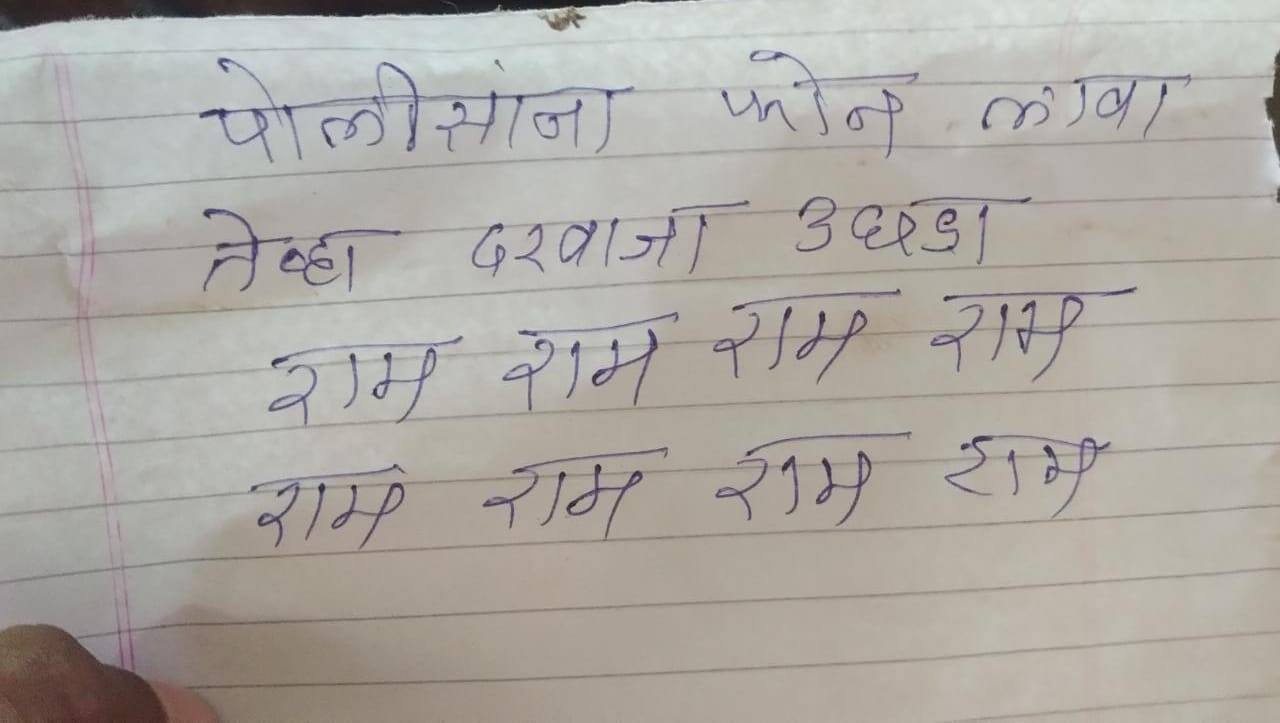 पोलीसांना फोन लावा
तेव्हा दरवाजा उघडा
राम राम राम राम
राम राम राम राम